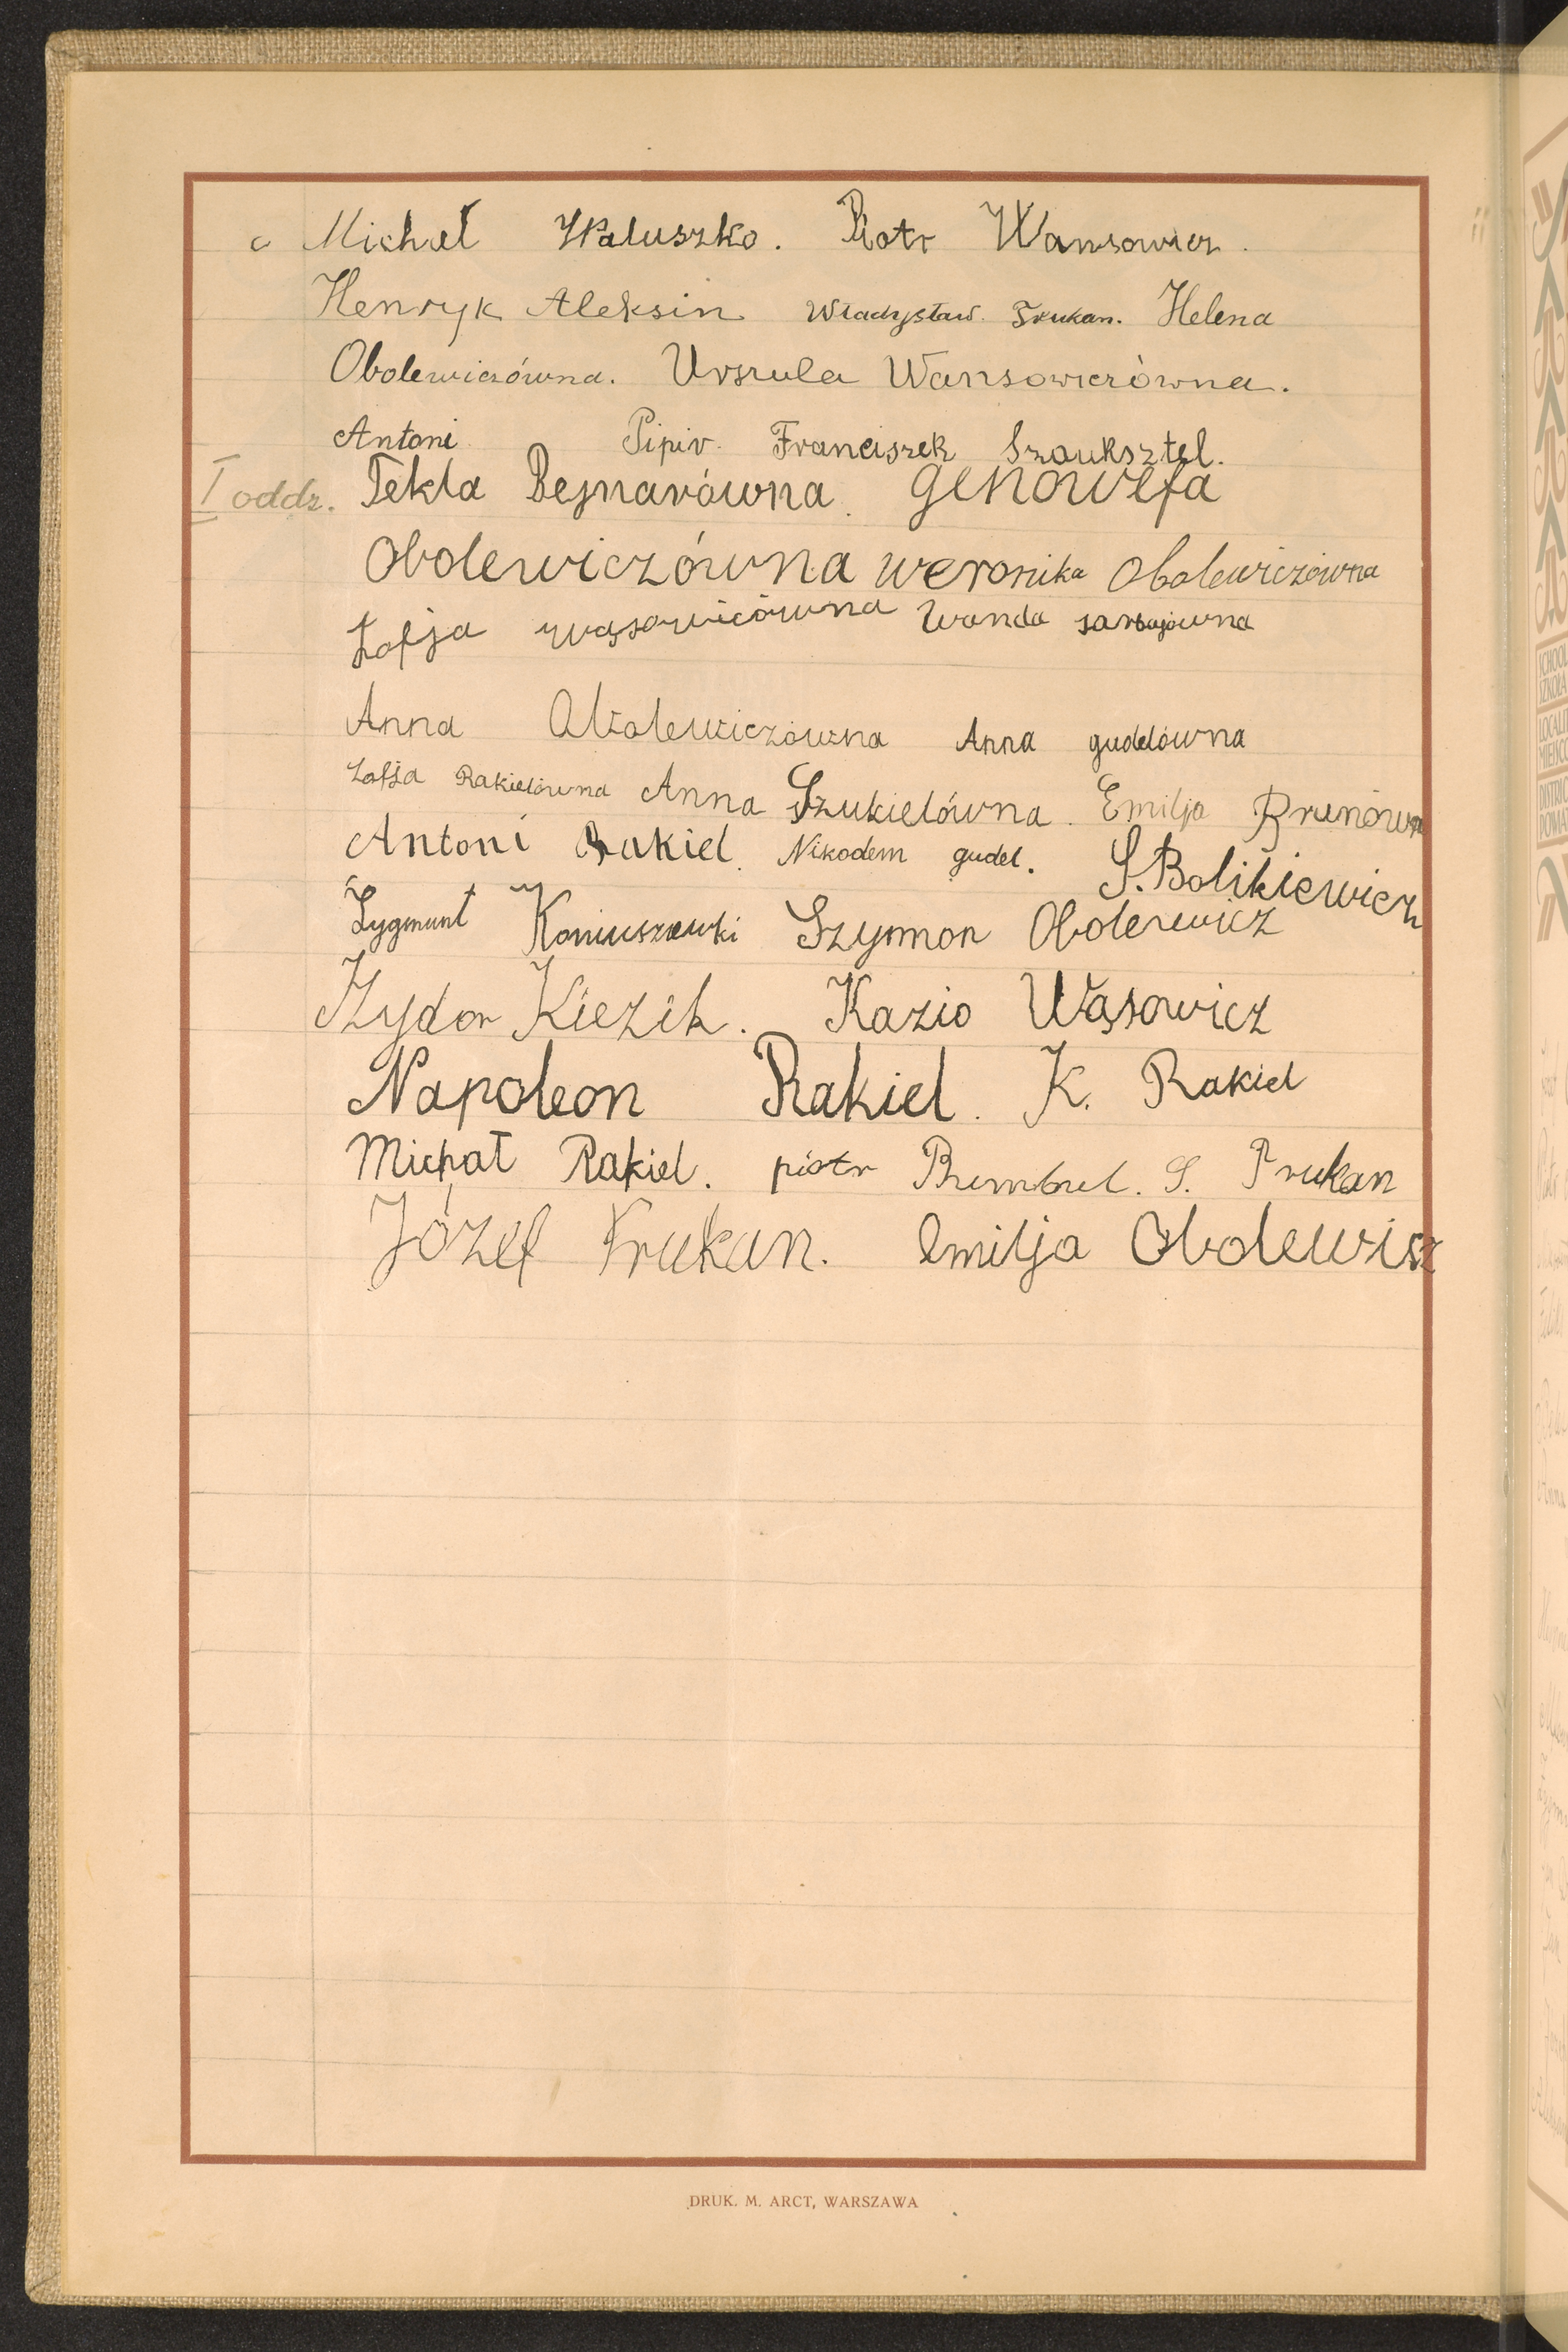 c Michał Waluszko. Piotr Wansowicz.
Henryk Aleksin Władysław. Trukan. Helena
Obolewiczówna. Urszula Wansowiczówna.
Antoni Pipir. Franciszek Szouksztel.
I oddz. Tekla Bejnarówna. genowefa
Obolewiczówna weronika Obolewiczówna
Zofja wąsowicówna Wanda
Anna Obolewiczówna Anna gudelówna
Zofja Rakielówna Anna Szukielówna. Emilja
Antoni Rakiel. Nikodem gudel. S. Bolikiewicz
Zygmunt Szymon Obolewicz
Izydor Kiezik. Kazio Wąsowicz
Napoleon Rakiel. K. Rakiel
Michał Rakiel. piotr S. Trukan
Józef Trukan. Emilja Obolewisz
DRUK. M. ARCT, WARSZAWA